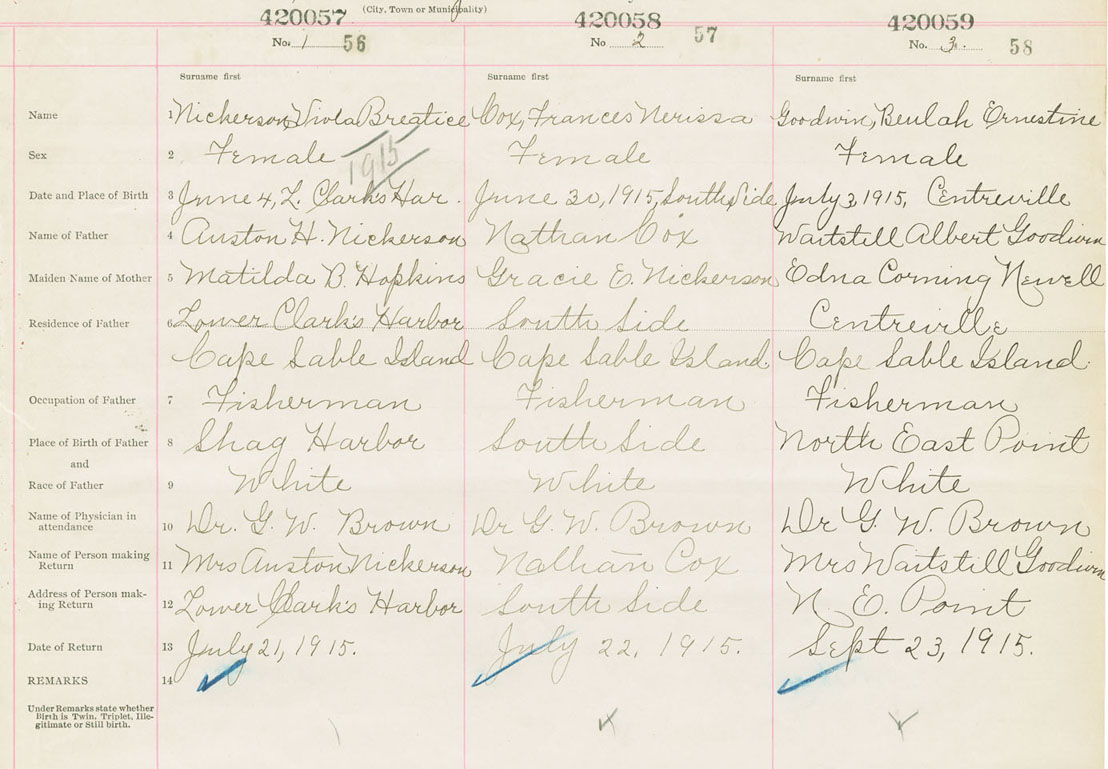 (City, Town or Municipality)
420057 420058 420059
No. 1 56 No 2 57 No. 3. 58
Surname first Surname first Surname first
Name 1 Nickerson, Viola Breatice Cox, Frances Nerissa Goodwin, Beulah Ernestine
Sex 2 Female Female Female
1915
Date and Place of Birth 3 June 4, L. Clark's Har. June 20, 1915, South Side July 3, 1915, Centreville
Name of Father 4 Auston H. Nickerson Nathan Cox Waitstill Albert Goodwin
Maiden Name of Mother 5 Matilda B. Hopkins Gracie E. Nickerson Edna Corning Newell
Residence of Father 6 Lower Clark's Harbor South Side Centreville
Cape Sable Island Cape Sable Island. Cape Sable Island.
Occupation of Father 7 Fisherman Fisherman Fisherman
Place of Birth of Father 8 Shag Harbor South Side North East Point
and
Race of Father 9 White White White
Name of Physician in
attendance 10 Dr. G. W. Brown Dr G. W. Brown Dr G. W. Brown
Name of Person making
Return 11 Mrs Auston Nickerson Nathan Cox Mrs Waitstill Goodwin
Address of Person mak-
ing Return 12 Lower Clark's Harbor South Side N. E. Point
Date of Return 13 July 21, 1915. July 22, 1915. Sept 23, 1915.
REMARKS 14
Under Remarks state whether
Birth is Twin, Triplet, Ille-
gitimate or Still birth.